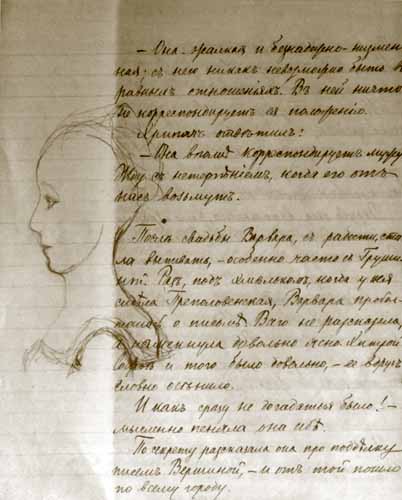 — Она жалкая и безнадежно-шумен-
ная; съ нею никакъ невозможно быть в
равныхъ отношенiяхъ. Въ ней ничто
не корреспондируетъ ея положенiю.
Хрипачъ отвѣтилъ:
— Она вполнѣ корреспондируетъ мужу
Жду съ нетерпѣнiемъ, когда его отъ
насъ возьмутъ.
Послѣ свадьбы Варвара, съ радости, ста
ла выпивать, — особенно часто съ Груши
ной. Разъ, подъ хмѣлькомъ, когда у нея
сидѣла Преполовенская, Варвара пробол
талась о письмѣ. Всего не разсказала,
а намекнула довольно ясно. Хитрой
Софьѣ и того было довольно, — ее вдругъ
словно осѣнило.
И какъ сразу не догадаться было! —
мысленно пеняла она себѣ.
По секрету разсказала она про поддѣлку
писемъ Вершиной, — и отъ той пошло
по всему городу.